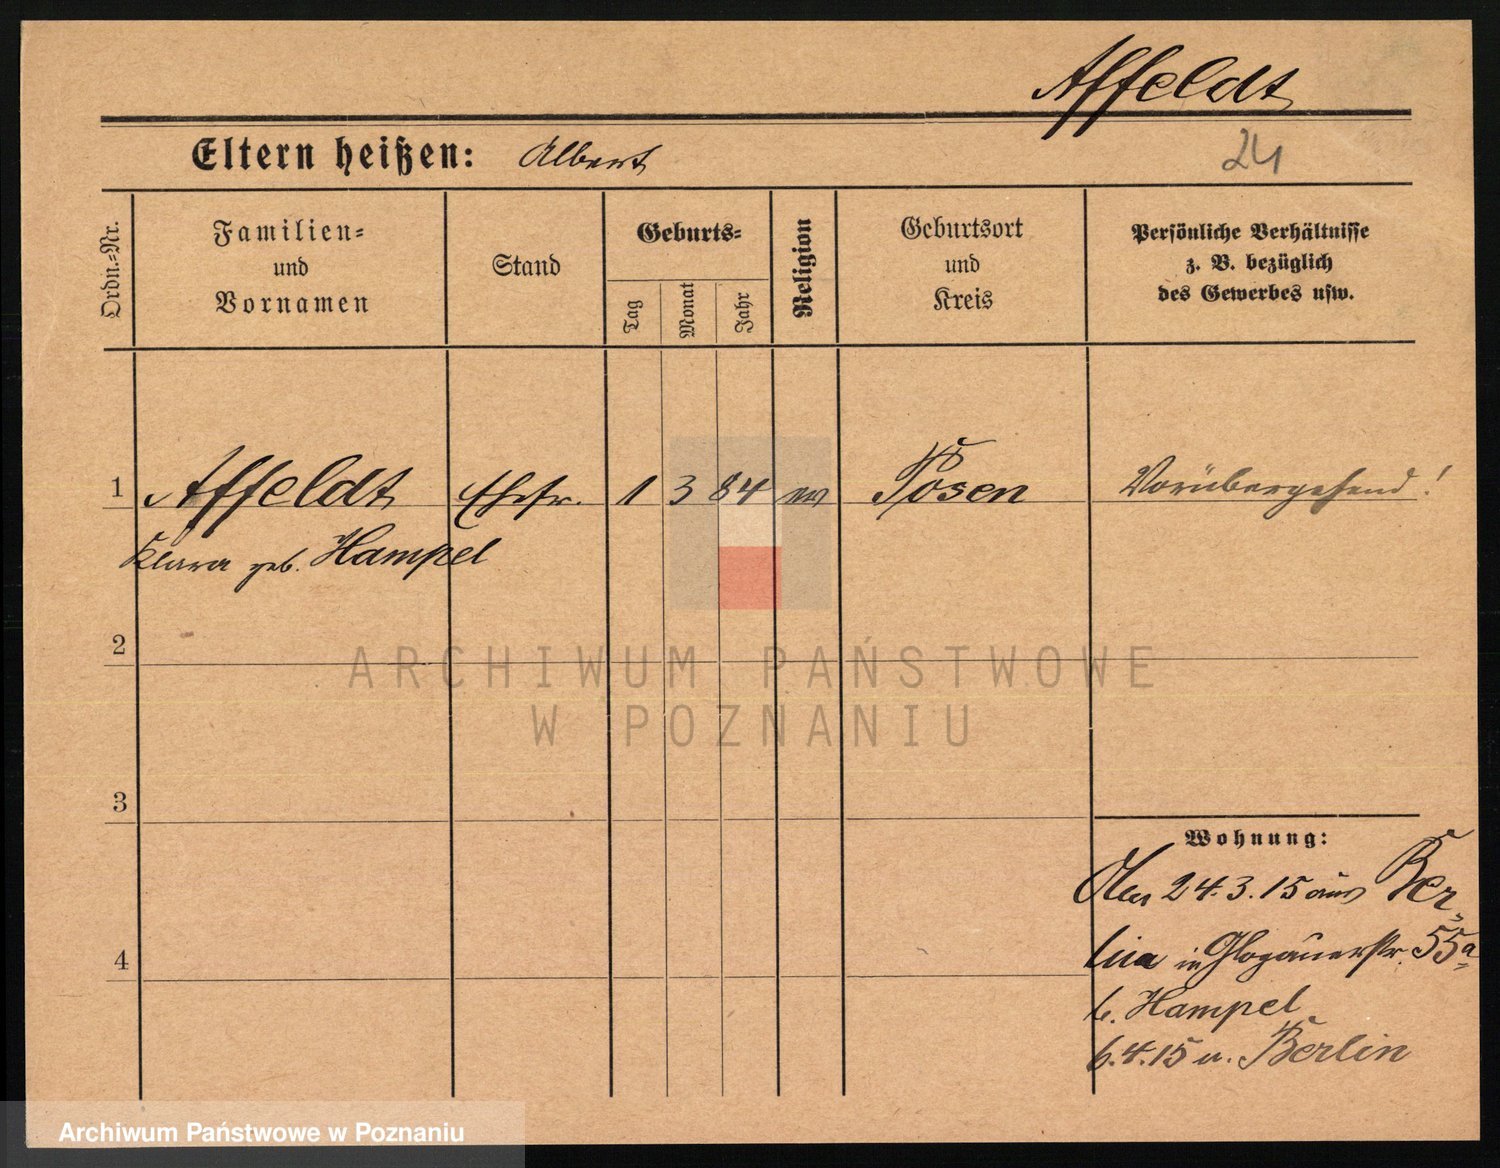 Affeldt
Eltern heißen: Albert
24
Ordn.-Nr.
Familien-
und
Vornamen
Stand
Geburts-
Tag
Monat
Jahr
Religion
Geburtsort
und
Kreis
Persönliche Verhältnisse
z. B. bezüglich
des Gewerbes usw.
1 Affeldt Ehefr. 1 3 84 ev Posen Vorübergehend!
Klara geb. Hampel
2
3
4
Wohnung:
24.3.15 aus Ber-
lin in Glogauerstr. 55a
b. Hampel
6.4.15 n. Berlin
ARCHIWUM PAŃSTWOWE
W POZNANIU
Archiwum Państwowe w Poznaniu